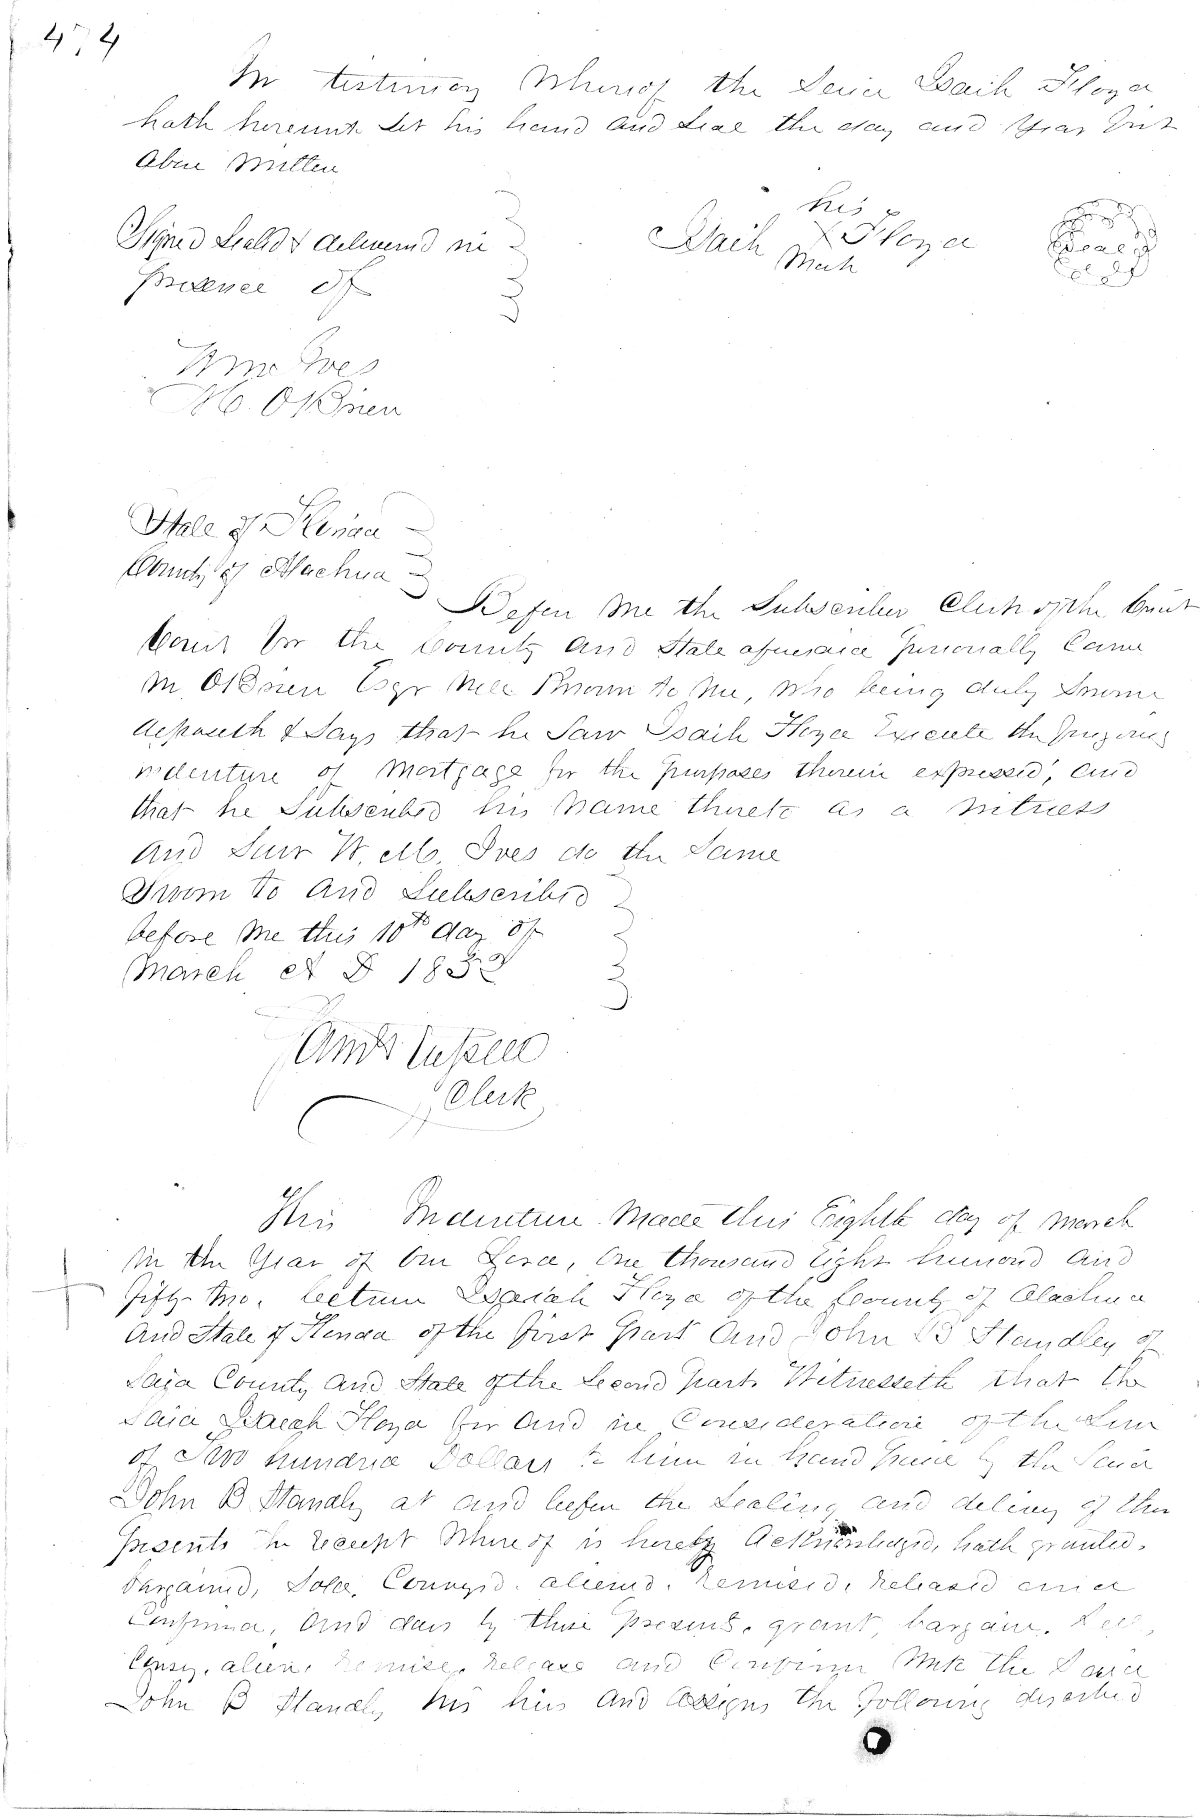 474
In testimony Whereof the Said Isaih Floyd
hath hereunto Set his hand and Seal the day and Year first
above written
Signed Seald & delivered in
presence of
his
Isaih X Floyd
Mark
Seal
Wm Ives
M. OBrien
State of Florida
County of Alachua
Before Me the Subscriber Clerk of the Circuit
Court for the County and State aforesaid personally Came
M. OBrien Esqr Well Known to Me, Who being duly Sworn
deposeth & Says that he Saw Isaih Floyd Execute the foregoing
indenture of Mortgage for the purposes therein expressed, and
that he Subscribed his Name thereto as a witness
And Saw W. M. Ives do the Same
Sworn to and Subscribed
before me this 10th day of
March A D 1852
Russell
Clerk
This Indenture Made this Eighth day of March
in the Year of Our Lord, One thousand Eight hundred and
fifty two. between Isaiah Floyd of the County of Alachua
and State of Florida of the first part and John B Standley of
Said County and State of the Second part. Witnesseth that the
Said Isaiah Floyd for and in Consideration of the Sum
of Two hundred Dollars to him in hand paid by the Said
John B Standly at and before the Sealing and delivery of these
presents the receipt Whereof is hereby Acknowledged, hath granted.
bargained, Sold, Conveyed. aliened. remised, released and
Confirmed, and does by these presents. grant, bargain. Sell,
Convey. alien. remise, release and Confirm Unto the Said
John B Standly his heirs and assigns the following described